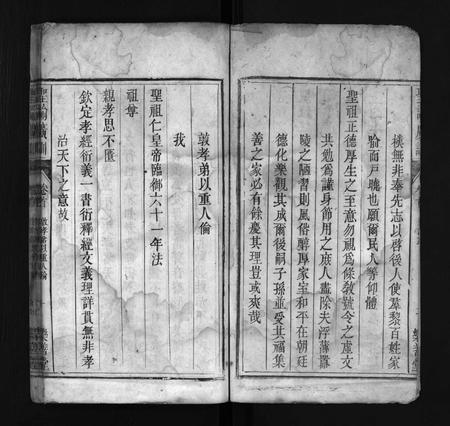 樸無非奉先志以啓後人使羣黎百姓家
喻而戶曉也願爾民人等仰體
聖祖正德厚生之至意勿視爲條敎號令之虛文
共勉爲謹身節用之庶人盡除夫浮薄囂
陵之陋習則風俗醇厚家室和平在朝廷
德化樂觀其成爾後嗣子孫並受其福積
善之家必有餘慶其理豈或爽哉
敦孝弟以重人倫
我
聖祖仁皇帝臨御六十一年法
祖尊
親孝思不匱
欽定孝經衍義一書衍釋經文義理詳貫無非孝
治天下之意故
聖諭廣訓
卷首
敦孝弟以重人倫
樂善堂